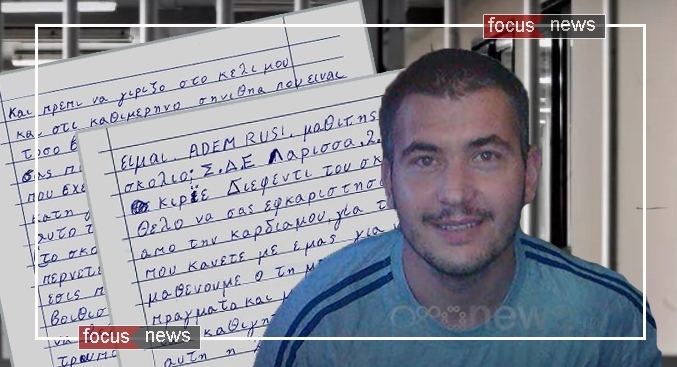 focus news
Και πρεπι να γιριζο στο κελι μου
και στι καθιμερηνο σηνιθηα που ειναι
τοσο
σας π
που εχε
κατη
αυτο τ
το σκο
περνετε
εσις π
βοιθισ
να
ειμαι. ADEM RUSI. μαθιτης
σκολιο; Σ.Δ.Ε Λαρισσα.2.
κιριε Διεφεντι του σκ
Θελο να σας εφκαριστησο
απο την καρδιαμου, για τ
που κανετε με εμας για
μαθενουμε ο τη μ
πραγματα και μ
καθιγητ
αυτη η
news
focus news